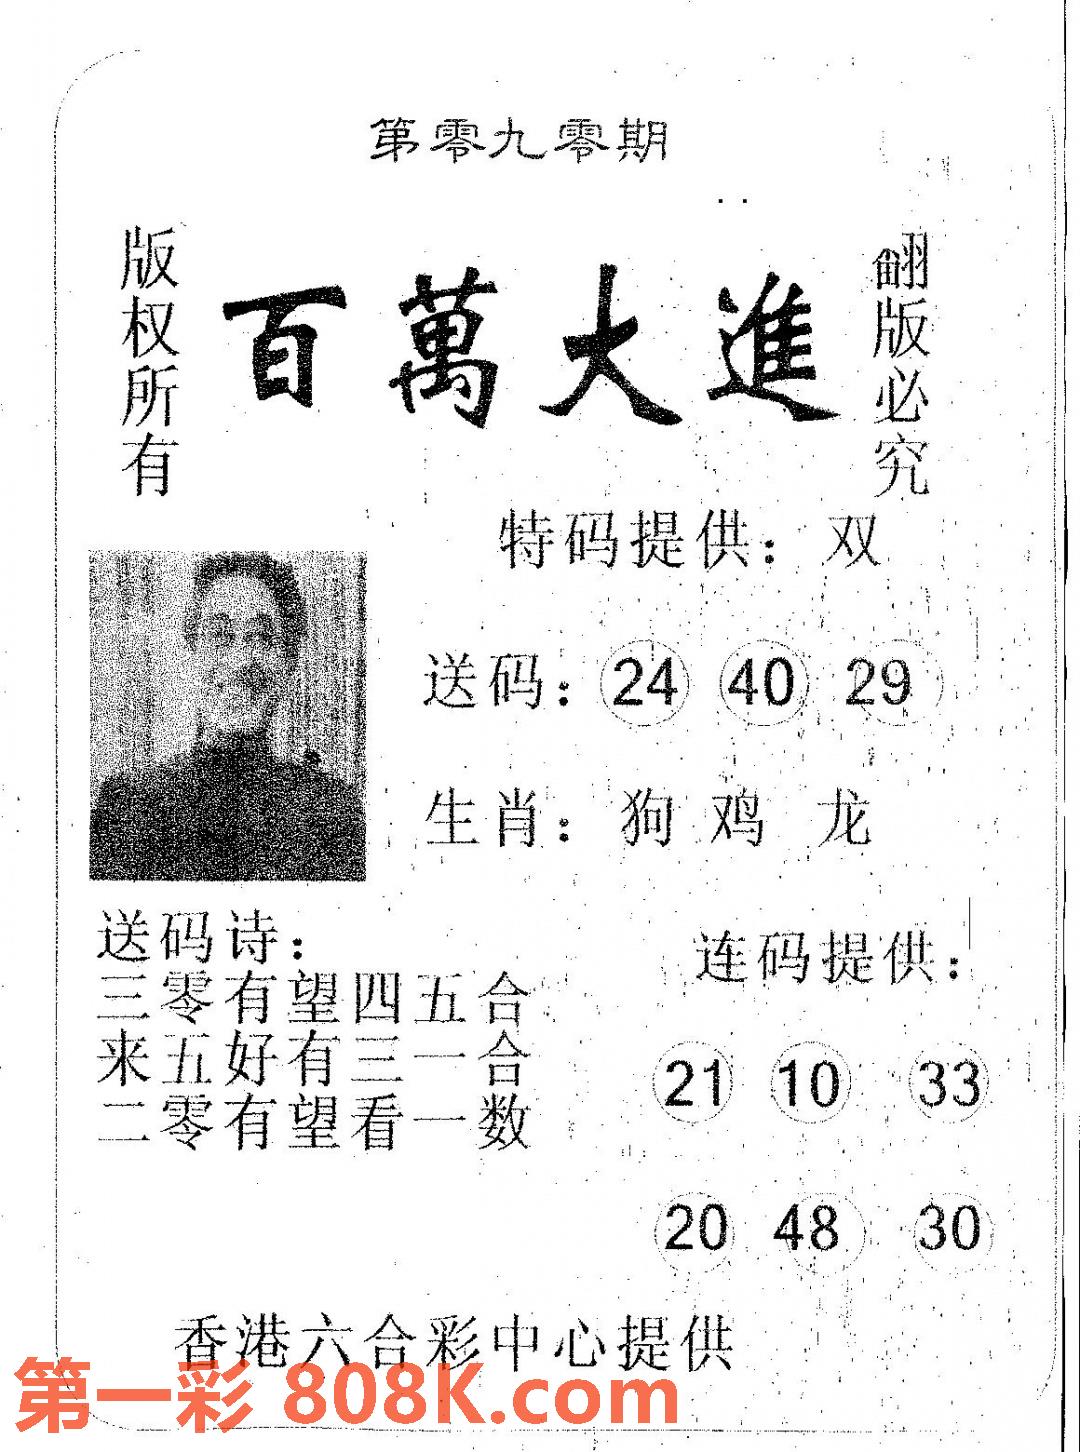 第零九零期
版权所有
百萬大進
翻版必究
特码提供：双
送码：24 40 29
生肖：狗 鸡 龙
送码诗：
三零有望四五合
来五好有三一合
二零有望看一数
连码提供：
21 10 33
20 48 30
香港六合彩中心提供
第一彩 808K.com